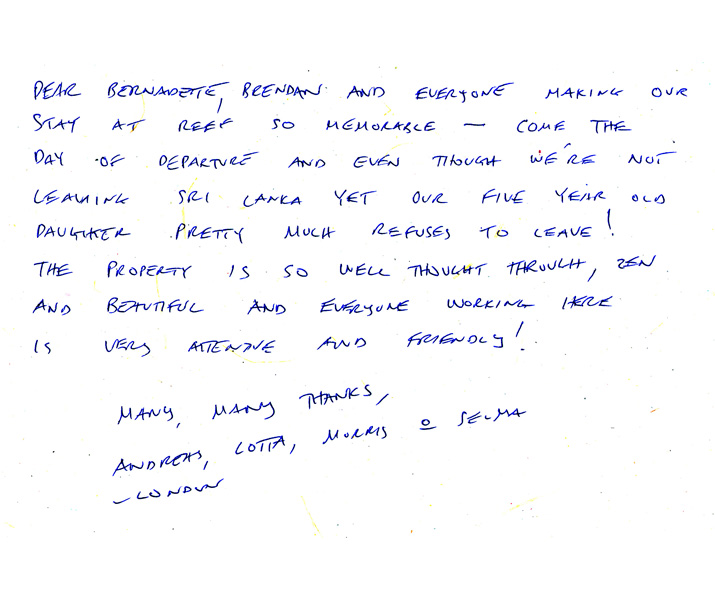 DEAR BERNADETTE, BRENDAN AND EVERYONE MAKING OUR
STAY AT REEF SO MEMORABLE — COME THE
DAY OF DEPARTURE AND EVEN THOUGH WE'RE NOT
LEAVING SRI LANKA YET OUR FIVE YEAR OLD
DAUGHTER PRETTY MUCH REFUSES TO LEAVE!
THE PROPERTY IS SO WELL THOUGHT THROUGH, ZEN
AND BEAUTIFUL AND EVERYONE WORKING HERE
IS VERY ATTENTIVE AND FRIENDLY!
MANY, MANY THANKS,
ANDREAS, LOTTA, MORRIS & SELMA
– LONDON